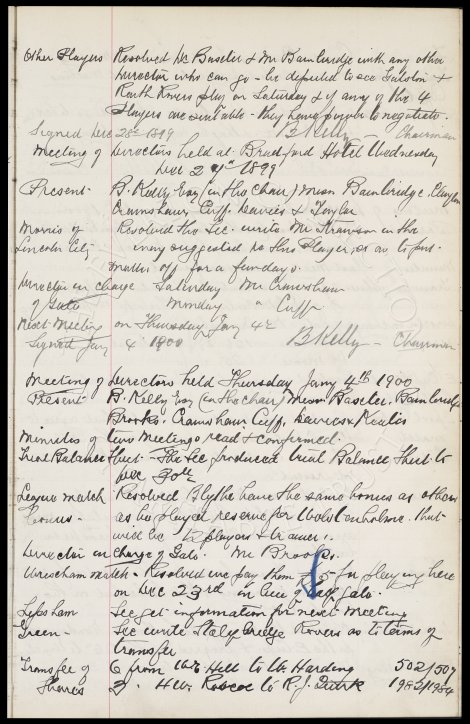 Other Players Resolved Dr Baxter & Mr Bainbridge with any other
Director who can go - be deputed to see Galston &
Raith Rovers play on Saturday & if any of the 4
Players are suitable - they have power to negotiate.
Signed Dec 28th 1899 B Kelly - Chairman
Meeting of Directors held at Bradford Hotel Wednesday
Dec 27th 1899
Present - B. Kelly Esq (in the Chair) Messrs Bainbridge, Clayton
Crawshaw, Cuff, Davies & Taylor
Morris of Resolved the Sec. write Mr Strawson in the
Lincoln City way suggested re this Player, so as to put
matters off for a few days.
Director in charge Saturday Mr Crawshaw
of Gate Monday " Cuff
Next Meeting on Thursday Jany 4th
Signed Jany 4 1900 B Kelly - Chairman
Meeting of Directors held Thursday Jany 4th 1900
Present B. Kelly Esq (in the Chair) Messrs Baxter, Bainbridge
Brooks, Crawshaw Cuff, Davies & Keates
Minutes of two Meetings read & confirmed.
Trial Balance Sheet - The Sec produced trial Balance Sheet to
Dec 30th
League match Resolved Blythe have the same bonus as others
Bonus - as he played reserve for Wolstenholme. that
will be to players & trainer.
Director in Charge of Gate. Mr Brooks.
Wrexham Match - Resolved we pay them £5 for playing here
on Dec 23rd in lieu of half gate.
Lipsham Sec get information for next Meeting
Green - Sec write Stalybridge Rovers as to terms of
transfer
Transfer of 6 from Hill to W. Harding 502/507
Shares 3. H.W. Roscoe to R.J. Quirk 1982/1984